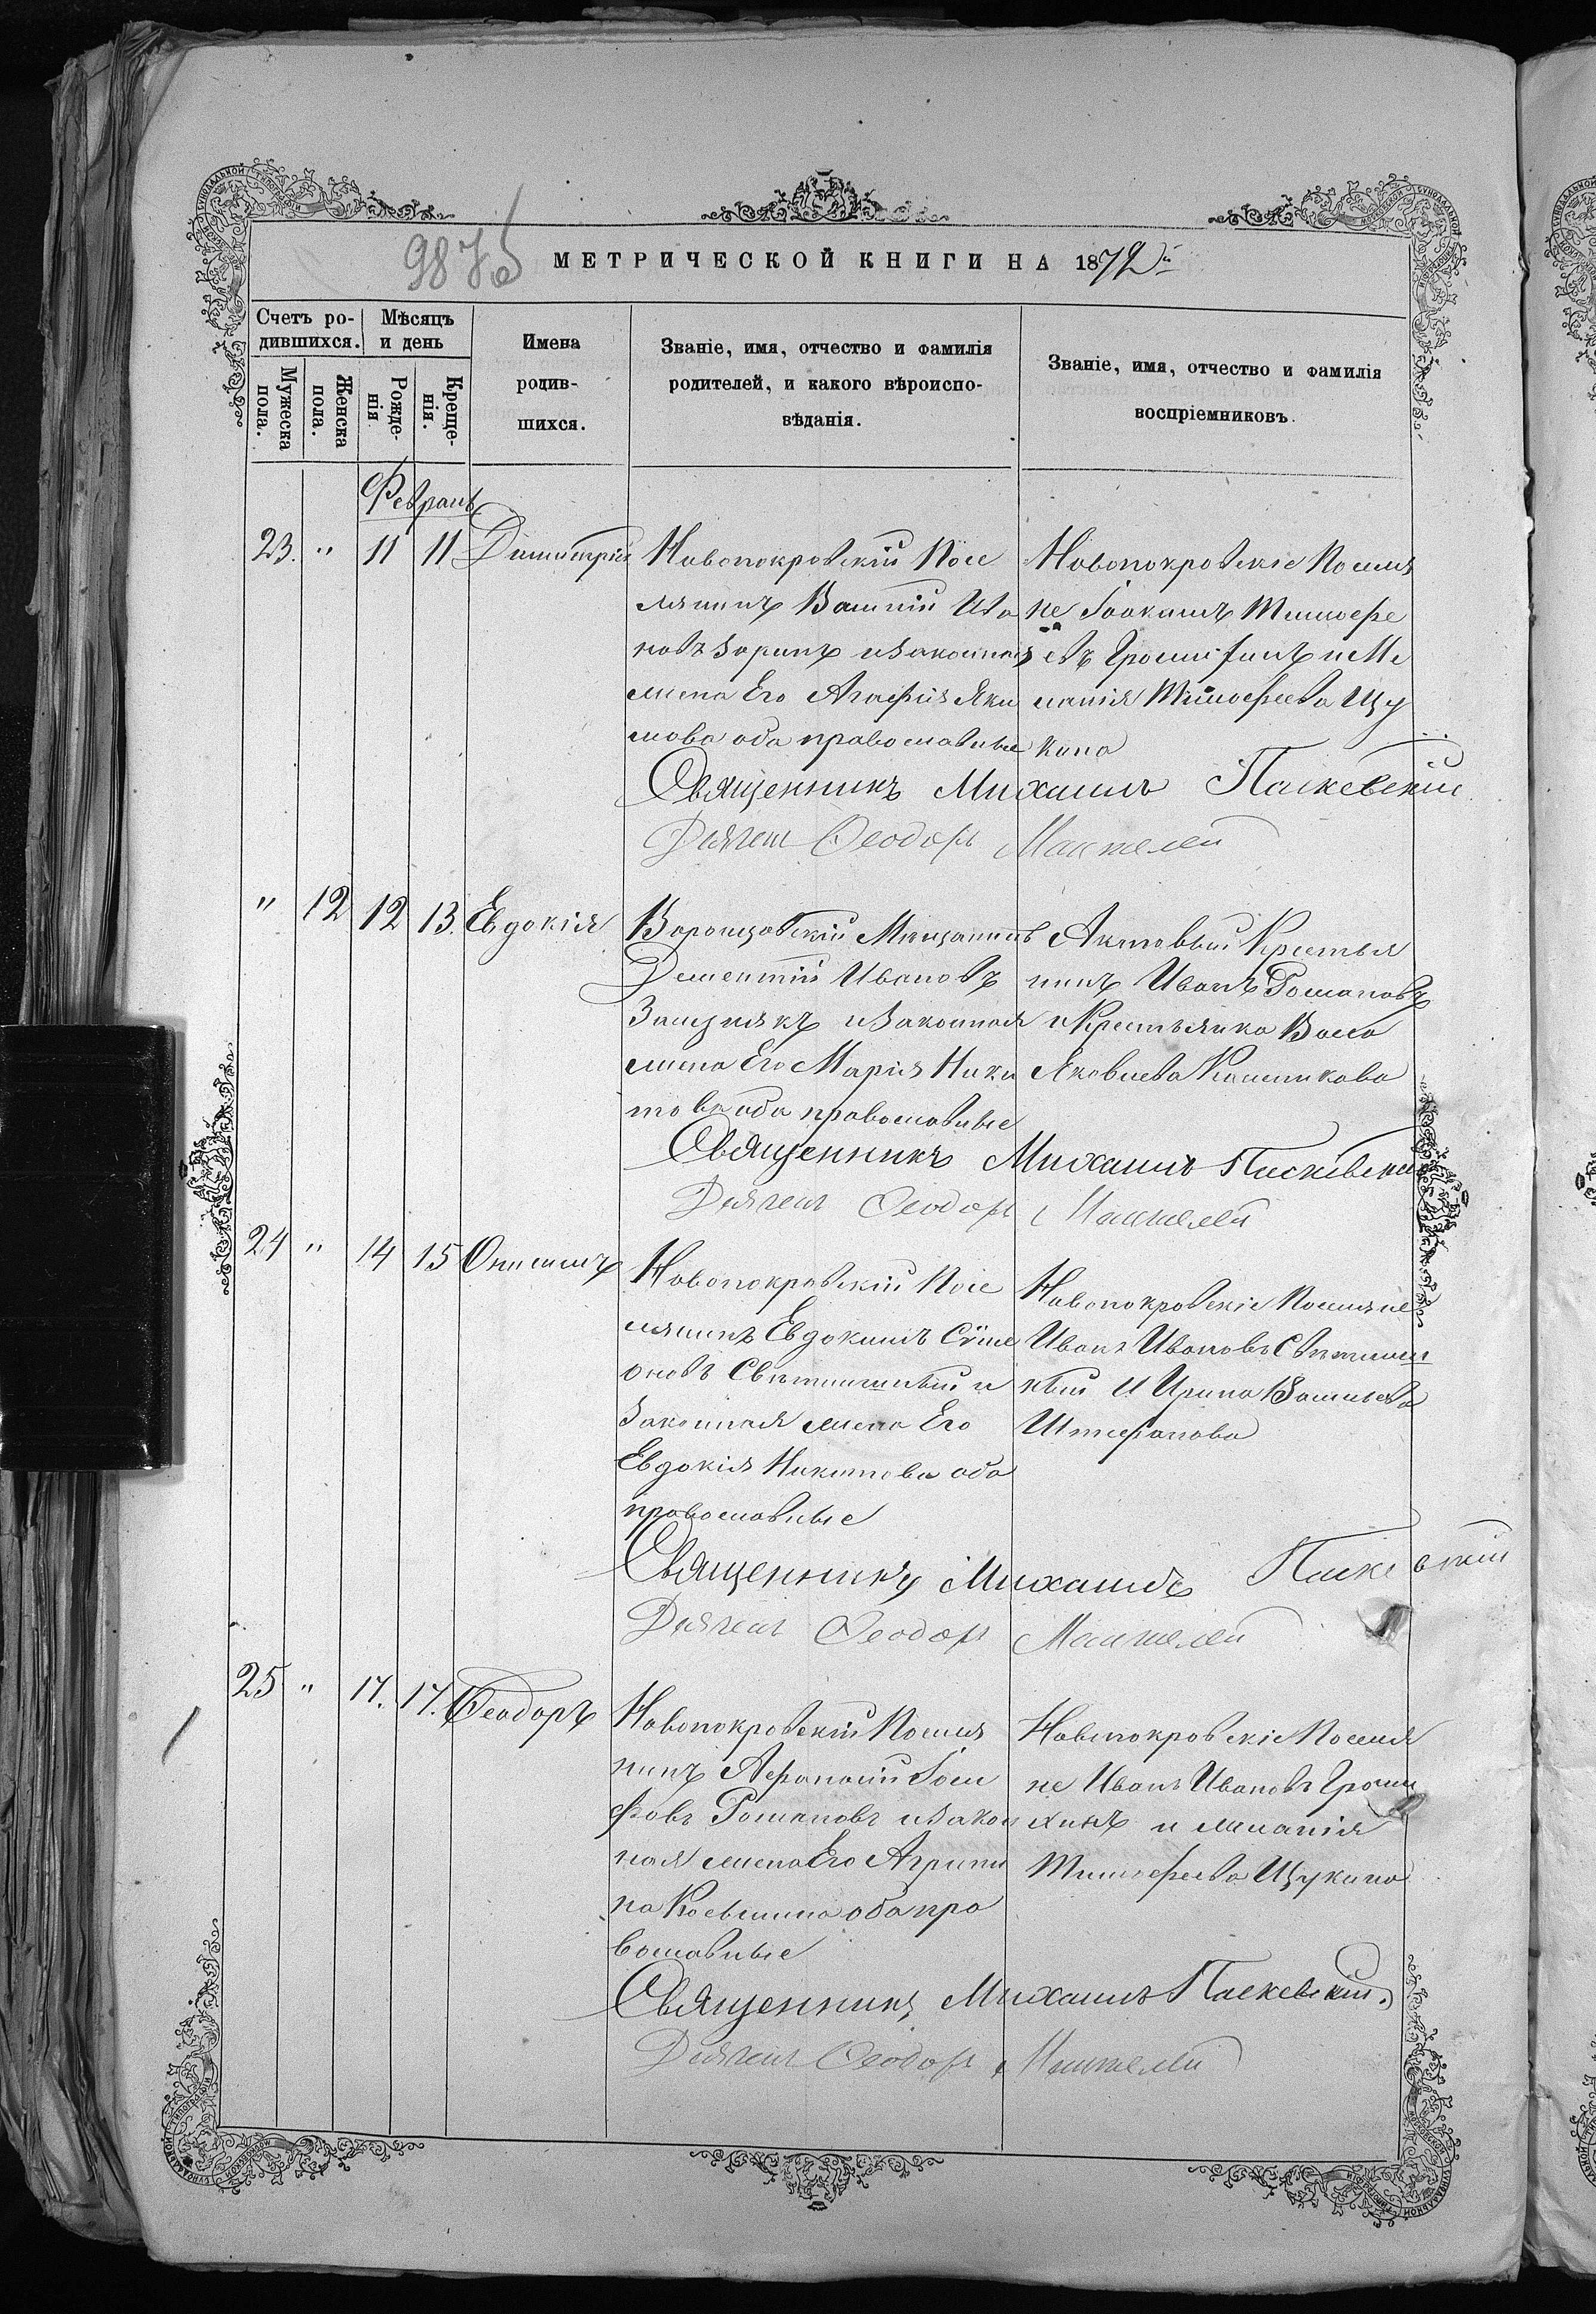 987
МЕТРИЧЕСКОЙ КНИГИ НА 1872й
Счетъ ро-
дившихся.
Мужеска
пола.
Женска
пола.
Мѣсяцъ
и день
Рожде-
нія
Креще-
нія.
Имена
родив-
шихся.
Званіе, имя, отчество и фамилія
родителей, и какого вѣроиспо-
вѣданія.
Званіе, имя, отчество и фамилія
воспріемниковъ.
Февраль
23. " 11 11 Димитрій
Новопокровскій Посе
лянинъ Василій Ива
новъ Заринъ и законная
жена Его Агафія Яки
мова оба православные
Новопокровскіе Поселя
не Іоакимъ Тимофе
евъ и Ме
ланія Тимофеева Щу
кина
Священникъ Михаилъ Паскевскій
Феодоръ
" 12 12 13. Евдокія
Воронцовскій Мещанинъ
Дементій Ивановъ
и законная
жена Его Марія Ники
това оба православные
Крестья
нинъ Иванъ Романовъ
и Крестьянка Васса
Яковлева
Священникъ Михаилъ Паскевскій
Феодоръ
24 " 14 15 Онисимъ
Новопокровскій Посе
лянинъ Евдокимъ Сѵме
оновъ и
законная жена Его
Евдокія Никитова оба
православные
Новопокровскіе Поселяне
Иванъ Ивановъ
и Ирина Васильева
Штефанова
Священникъ Михаилъ Паскевскій
Феодоръ
25 " 17. 17. Феодоръ
Новопокровскій Поселя
нинъ Афанасій Іоси
фовъ Романовъ и закон
ная жена Его Агрипи
на оба пра
вославные
Новопокровскіе Поселя
не Иванъ Ивановъ
и Меланія
Тимофеева Щукина
Священникъ Михаилъ Паскевскій.
Феодоръ